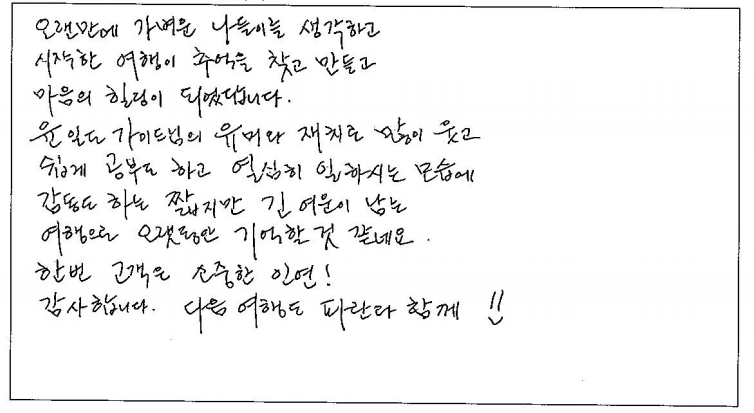 오랜만에 가벼운 나들이를 생각하고
시작한 여행이 추억을 찾고 만들고
마음의 힐링이 되었답니다.
윤일도 가이드님의 유머와 재치로 많이 웃고
쉽게 공부도 하고 열심히 일하시는 모습에
감동도 하는 짧지만 긴 여운이 남는
여행으로 오랫동안 기억할 것 같네요.
한번 고객은 소중한 인연!
감사합니다. 다음 여행도 파란라 함께 !!